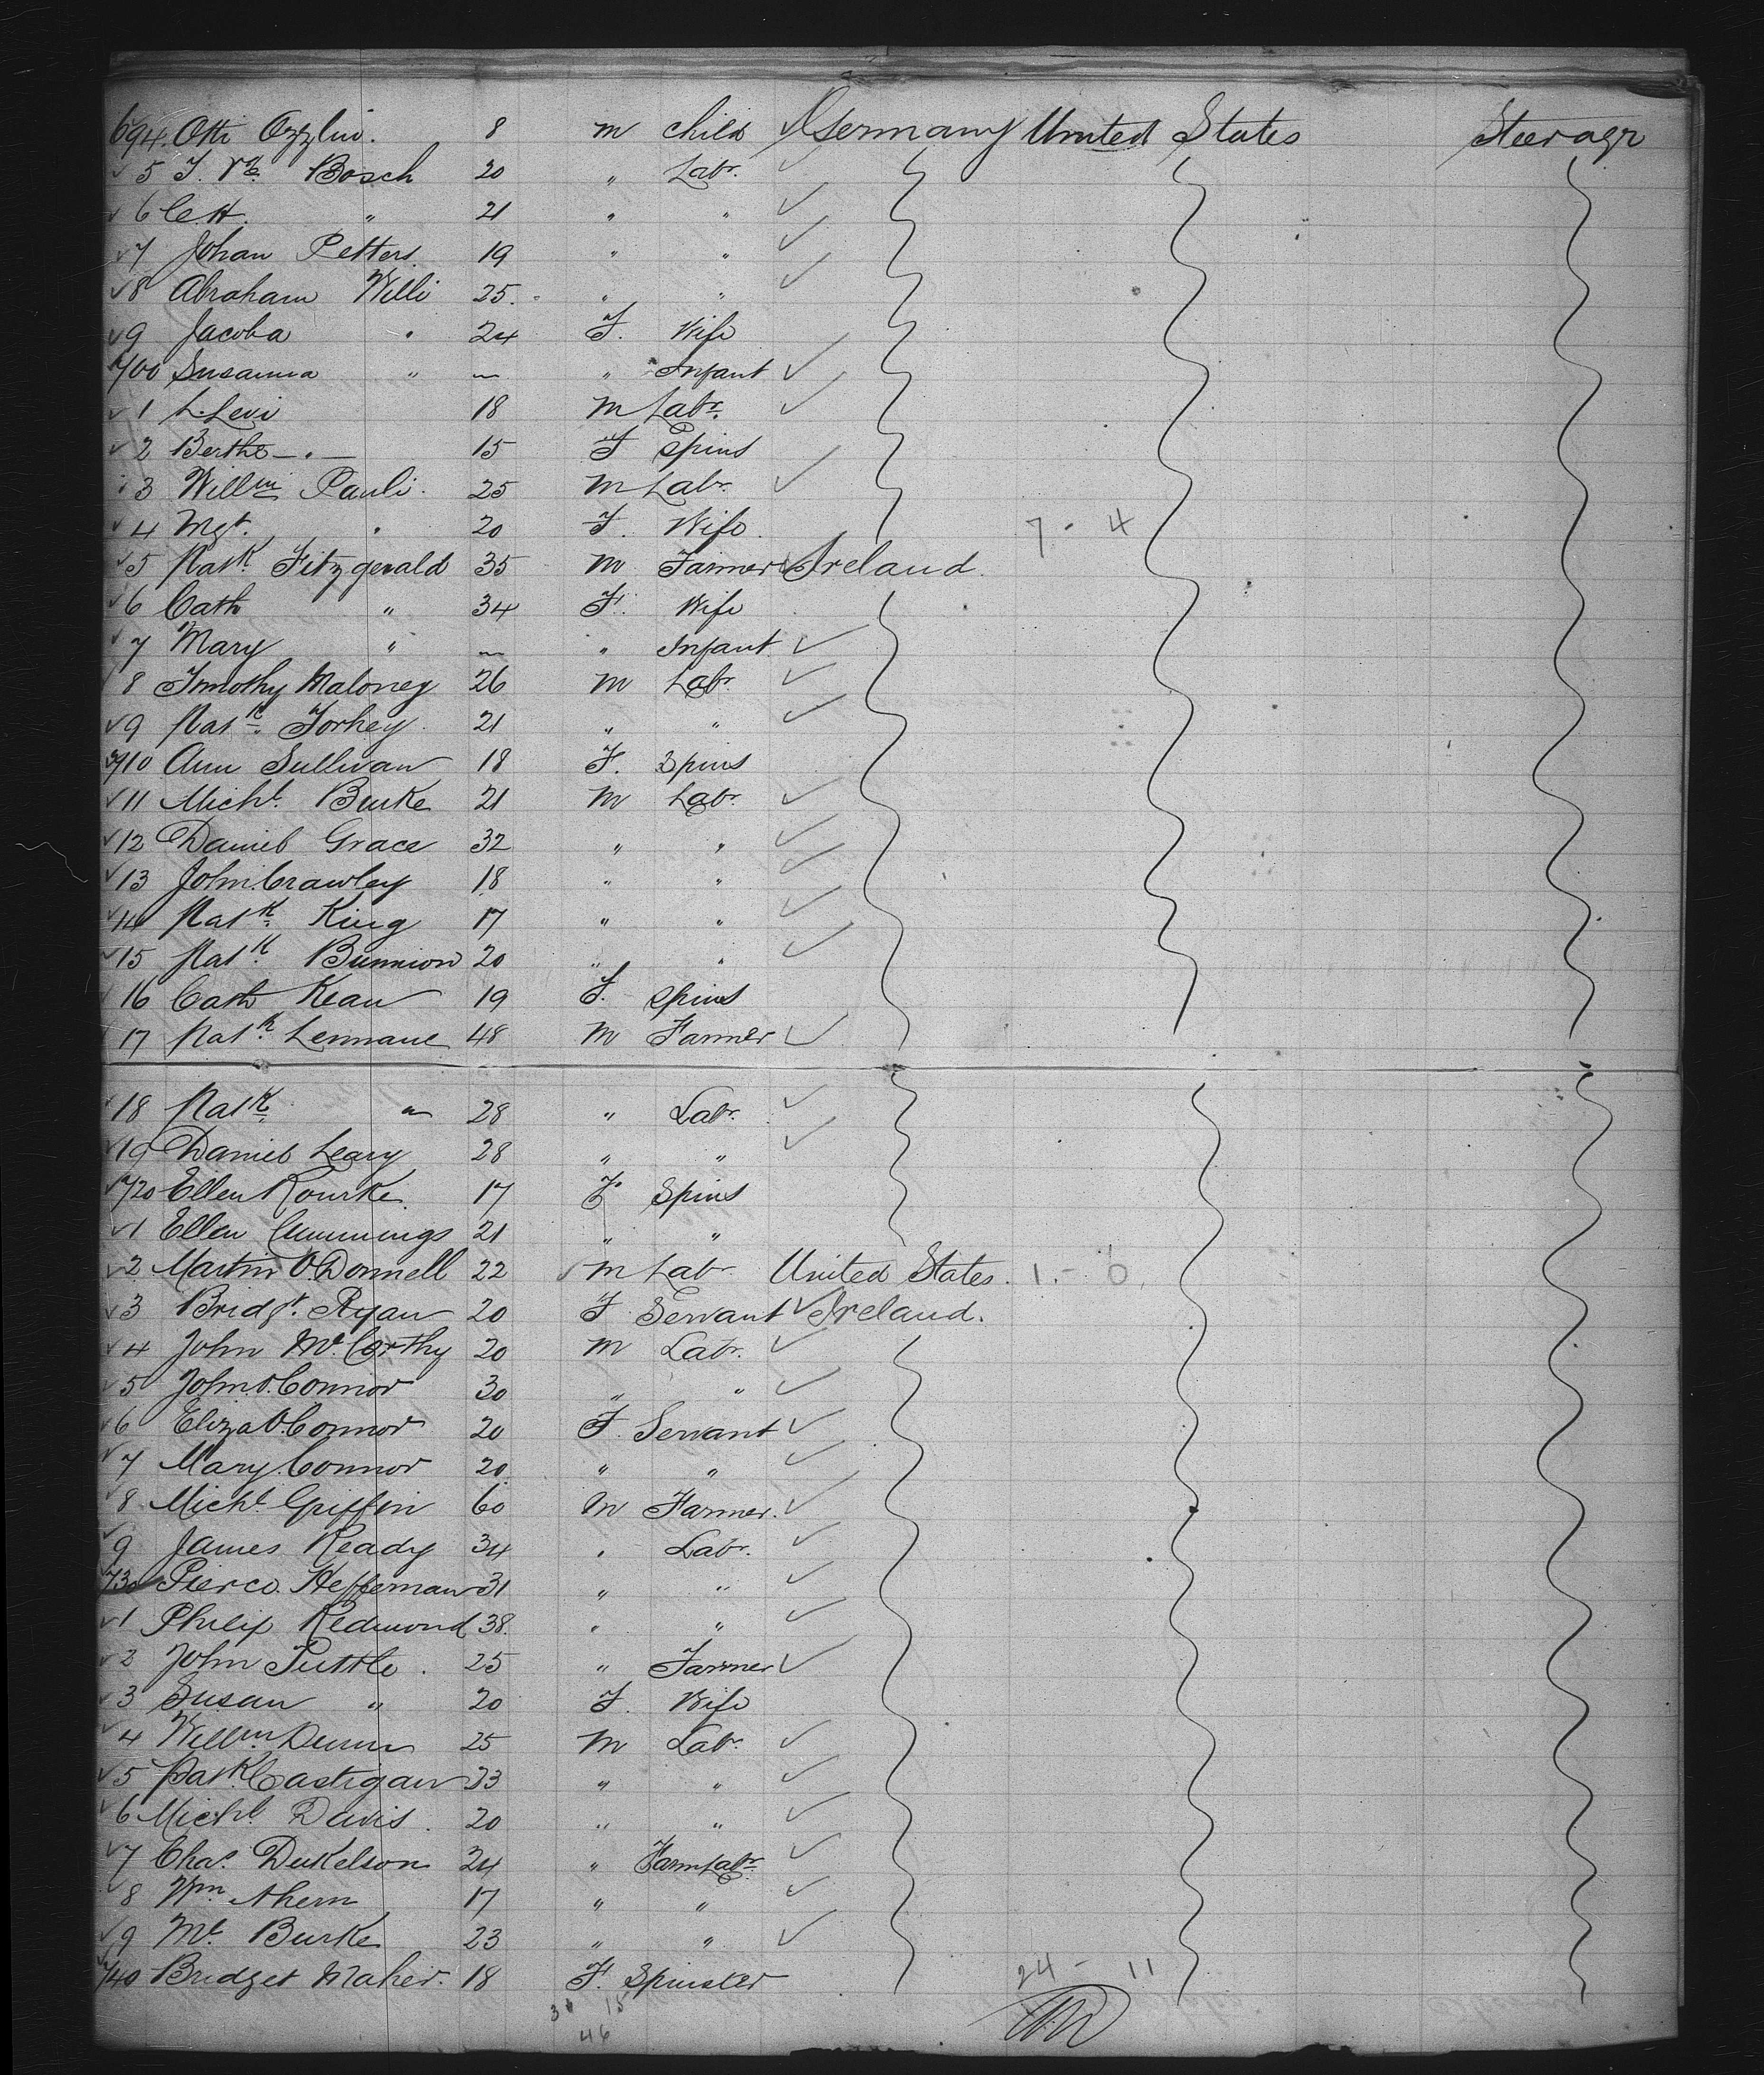 694. Otti Ozzlin. 8 m child Germany United States Steerage
5 J. Bosch 20 " Labr.
6 C. H. " 21 " "
7 Johan Petters 19 " "
8 Abraham Willi 25. " "
9 Jacoba " 24 F. Wife
700 Susanna " ~ " Infant
1 L. Levi 18 m Labr.
2 Bertha — " — 15 F Spins
3 Willm Pauli. 25 m Labr.
4 Mgt. " 20 F. Wife. 7 - 4
5 Patk Fitzgerald 35 m Farmer Ireland.
6 Cath " 34 F. Wife
7 Mary " ~ " Infant
8 Timothy Maloney 26 m Labr.
9 Patk. Torhey 21 " "
710 Ann Sullivan 18 F. Spins
11 Michl. Burke 21 m Labr.
12 Daniel Grace 32 " "
13 John Crawley 18 " "
14 Patk. King 17 " "
15 Patk. Bunnion 20 " "
16 Cath Kean 19 F. Spins
17 Patk. Lennane 48 m Farmer
18 Patk. " 28 " Labr.
19 Daniel Leary 28 " "
720 Ellen Rourke 17 F. Spins
1 Ellen Cummings 21 " "
2 Martin O'Donnell 22 m Labr United States. 1. - 0.
3 Bridgt. Ryan 20 F. Servant Ireland.
4 John McCorthy 20 m Labr.
5 John O'Connor 30 " "
6 Eliza O'Connor 20 F. Servant
7 Mary Connor 20 " "
8 Michl. Griffin 60 m Farmer.
9 James Ready 34 " Labr.
730 Pierce Heffernan 31 " "
1 Philip Redmond 38. " "
2 John Tuttle. 25 " Farmer
3 Susan " 20 F. Wife
4 Willm. Dunn 25 m Labr.
5 Patk. Castigan 33 " "
6 Michl. Davis. 20 " "
7 Chas. Dukelson 24 " Farm Labr.
8 Wm Ahern 17 " "
9 Ml. Burke 23 " "
740 Bridget Maher. 18 F. Spinster 24 - 11
31 15
46